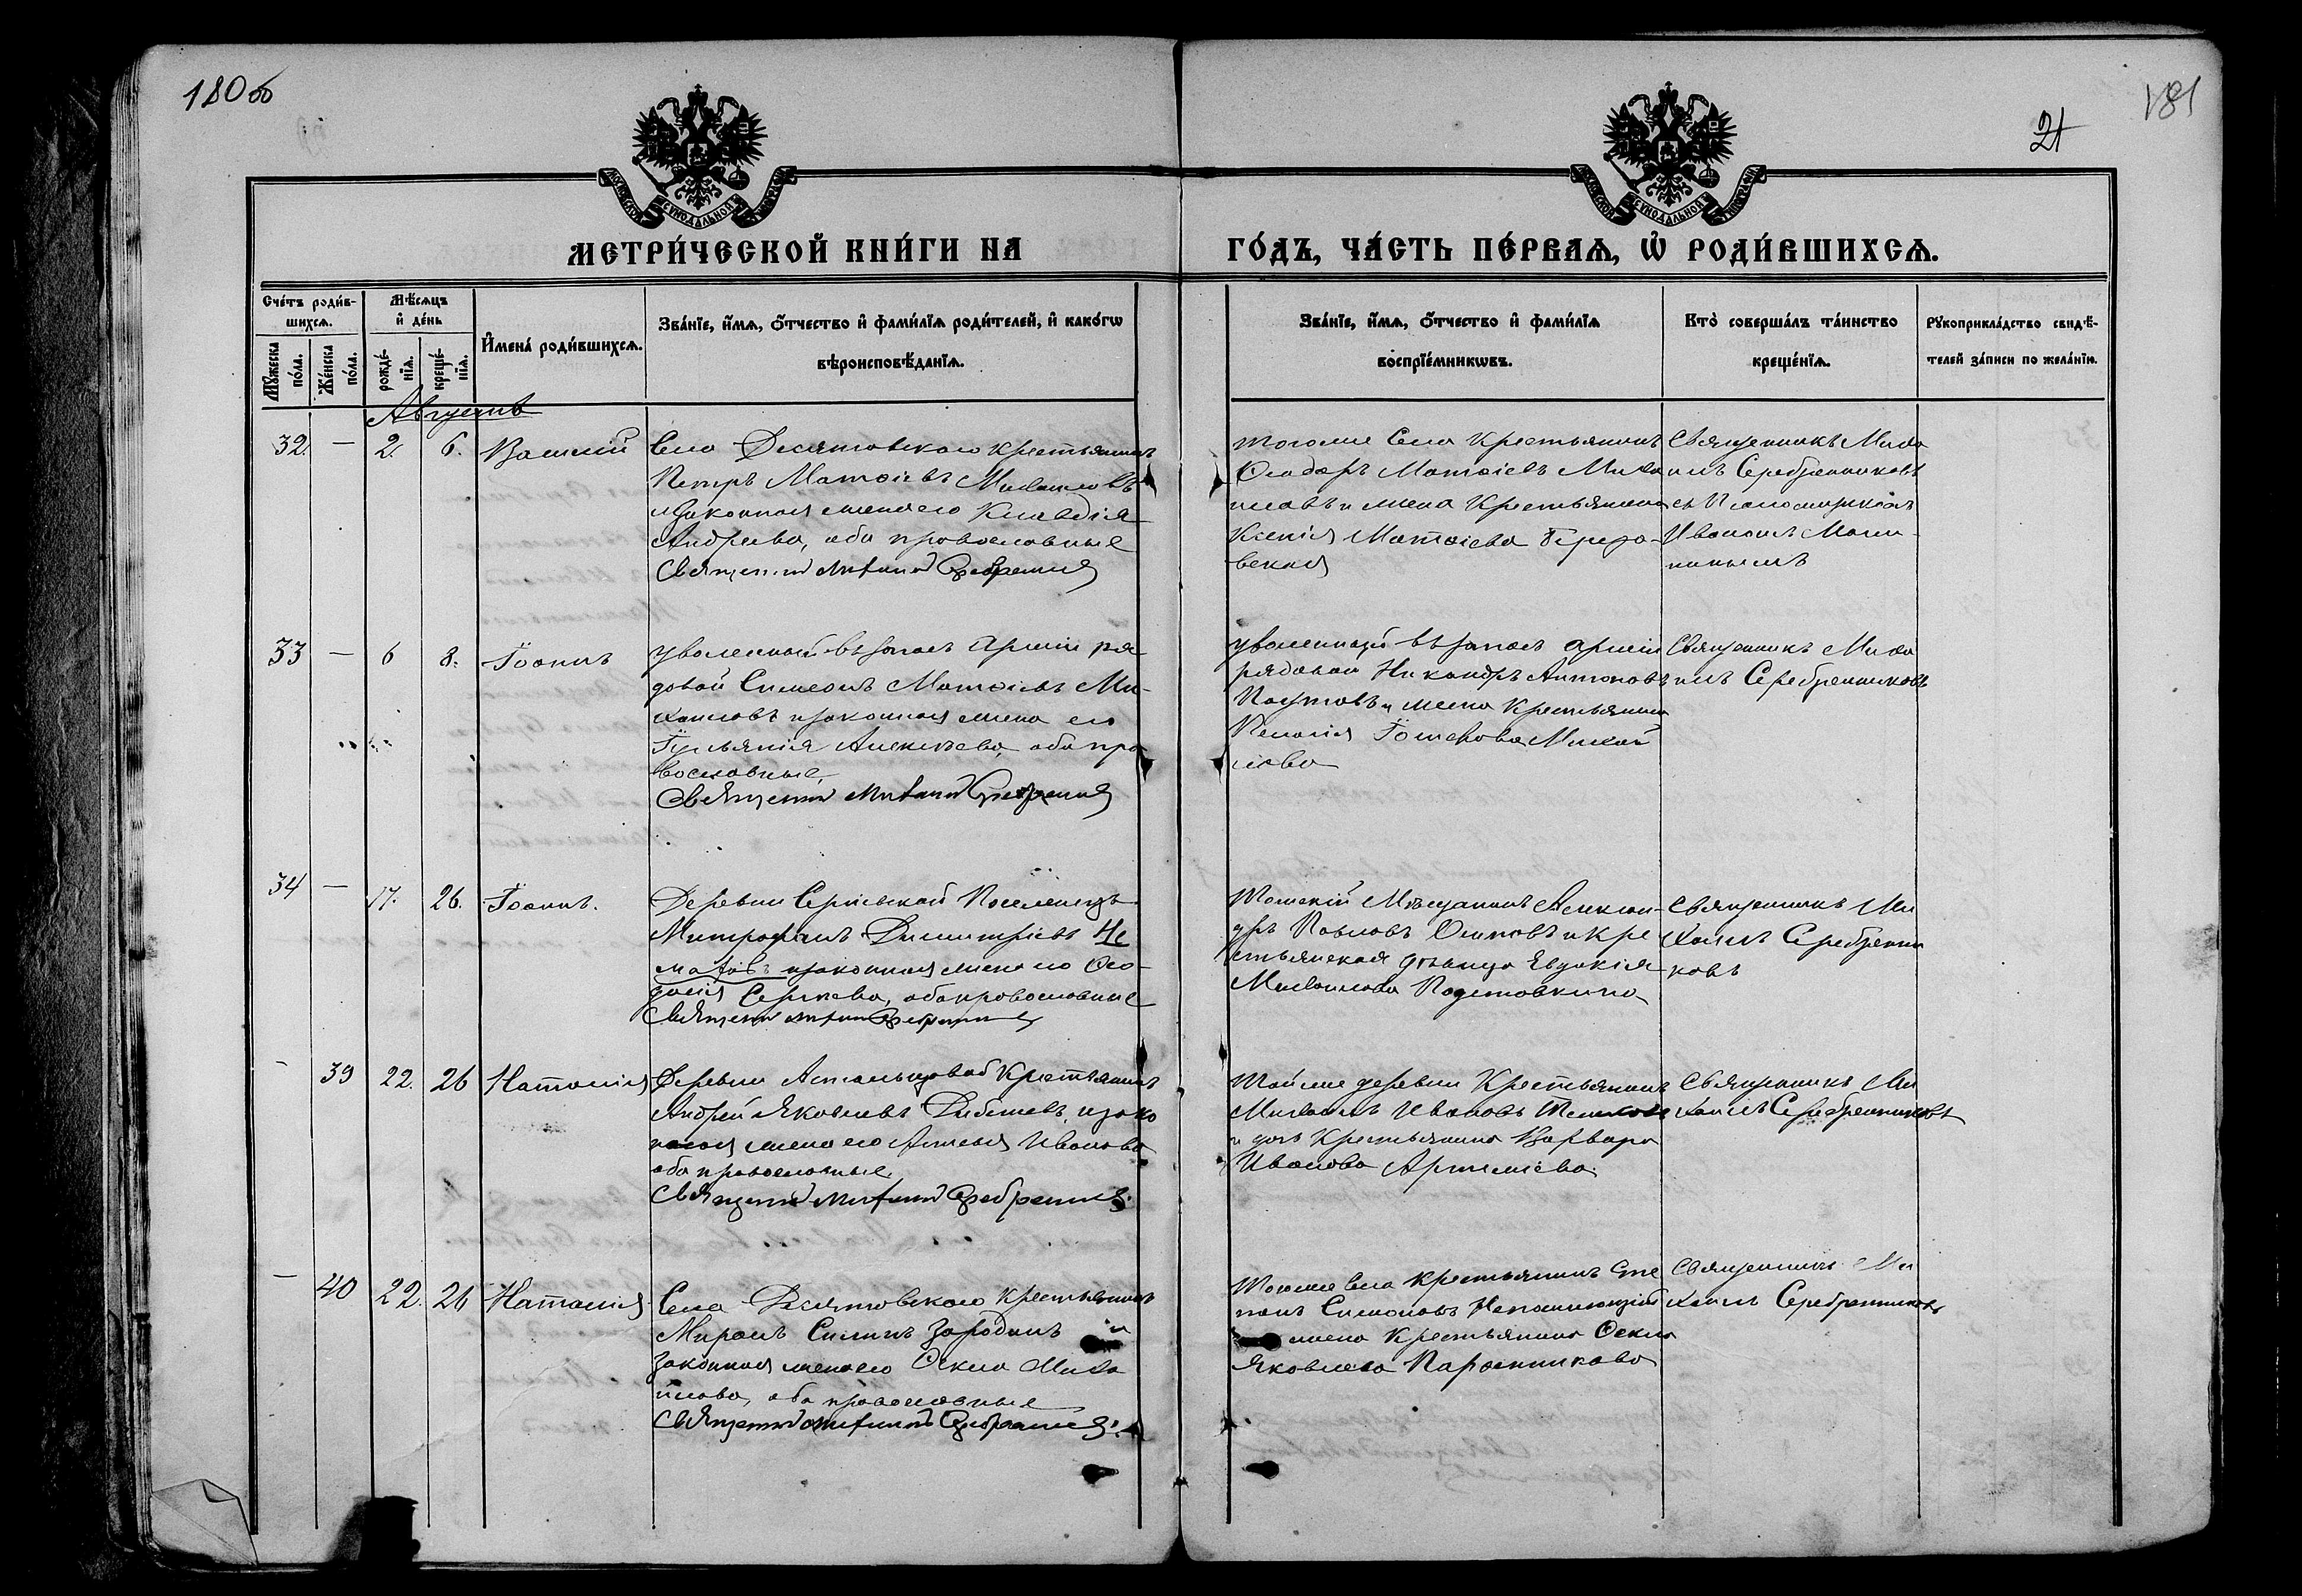 180об
181
21
МЕТРИ́ЧЕСКОЙ КНИ́ГИ НА
ГО́ДЪ, ЧА́СТЬ ПЕ́РВАѦ, Ѡ҆ РОДИ́ВШИХСѦ.
Сче́тъ роди́в-
шихсѧ.
Мꙋ́жеска
по́ла.
Же́нска
по́ла.
Мѣ́сѧцъ
и҆ де́нь
рожде́-
нїѧ.
креще́-
нїѧ.
И҆мена̀ роди́вшихсѧ.
Зва́нїе, и҆́мѧ, ѻ҆́тчество и҆ фами́лїѧ роди́телей, и҆ како́гѡ
вѣроисповѣ́данїѧ.
Зва́нїе, и҆́мѧ, ѻ҆́тчество и҆ фами́лїѧ
воспрїе́мникѡвъ.
Кто̀ соверша́лъ та́инство
креще́нїѧ.
Рꙋкоприкла́дство свидѣ́-
телей за́писи по жела́нїю.
Августъ
32. — 2. 6. Василій
Села Десятовскаго крестьянинъ
Петръ Матѳіевъ Михаиловъ
и законная жена его Клавдія
Андреева, оба православные
Священникъ Михаилъ Серебренниковъ
тогоже Села Крестьянинъ
Ѳеодоръ Матѳіевъ Миха
иловъ и жена Крестьянина
Ксенія Матѳіева
вская
Священникъ Миха
илъ Серебренниковъ
съ Псаломщикомъ
Иваномъ
33 — 6 8. Іоаннъ
Уволенный въ запасъ Арміи ря
довой Симеонъ Матѳіевъ Ми-
хаиловъ и законная жена его
Іуліанія Алексѣева, оба пра
вославные,
Священникъ Михаилъ Серебренниковъ
Уволенный въ запасъ арміи
рядовой Никандръ Антоновъ
и жена Крестьянина
Пелагія Михаи
лова
Священникъ Миха
илъ Серебренниковъ
34 — 17. 26. Іоаннъ.
Деревни Сергіевской Поселенецъ
Митрофанъ Димитріевъ
и законная жена его Ѳео-
досія Сергѣева, оба православные
Священникъ Михаилъ Серебренниковъ
Томскій Мѣщанинъ Алексан-
дръ Павловъ Осиповъ и Кре
стьянская дѣвица Евдокія
Михаилова
Священникъ Ми
хаилъ Серебренни
ковъ
- 39 22. 26 Наталія
Деревни Крестьянинъ
Андрей Яковлевъ и зако
нная жена его Иванова
оба православные.
Священникъ Михаилъ Серебренниковъ.
Тойже деревни Крестьянинъ
Михаилъ Ивановъ
и дочь Крестьянина Варвара
Иванова Артемьева.
Священникъ Ми
хаилъ Серебренниковъ
— 40 22. 26 Наталія
Села Десятовскаго Крестьянинъ
Миронъ и
законная жена его Ѳекла Миха
илова, оба православные
Священникъ Михаилъ Серебренниковъ.
Тогоже Села Крестьянинъ Сте
панъ Симоновъ Непомнющій
жена Крестьянина Ѳекла
Яковлева Парѳенникова
Священникъ Ми
хаилъ Серебренниковъ